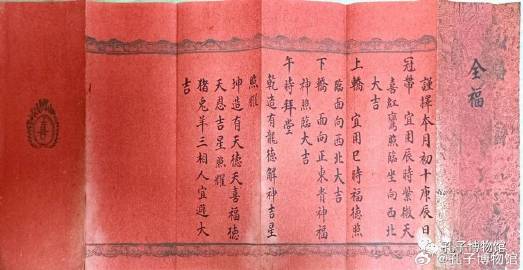 全福
謹擇本月初十庚辰日
冠帶 宜用辰時紫微天
喜紅鸞照臨坐向西北
大吉
上轎 宜用巳時福德照
臨面向西北大吉
下轎 面向正東貴神福
神照臨大吉
午時拜堂
乾造有龍德解神吉星
照耀
坤造有天德天喜福德
天恩吉星照耀
猪兔羊三相人宜避大
吉
孔子博物馆
@孔子博物馆